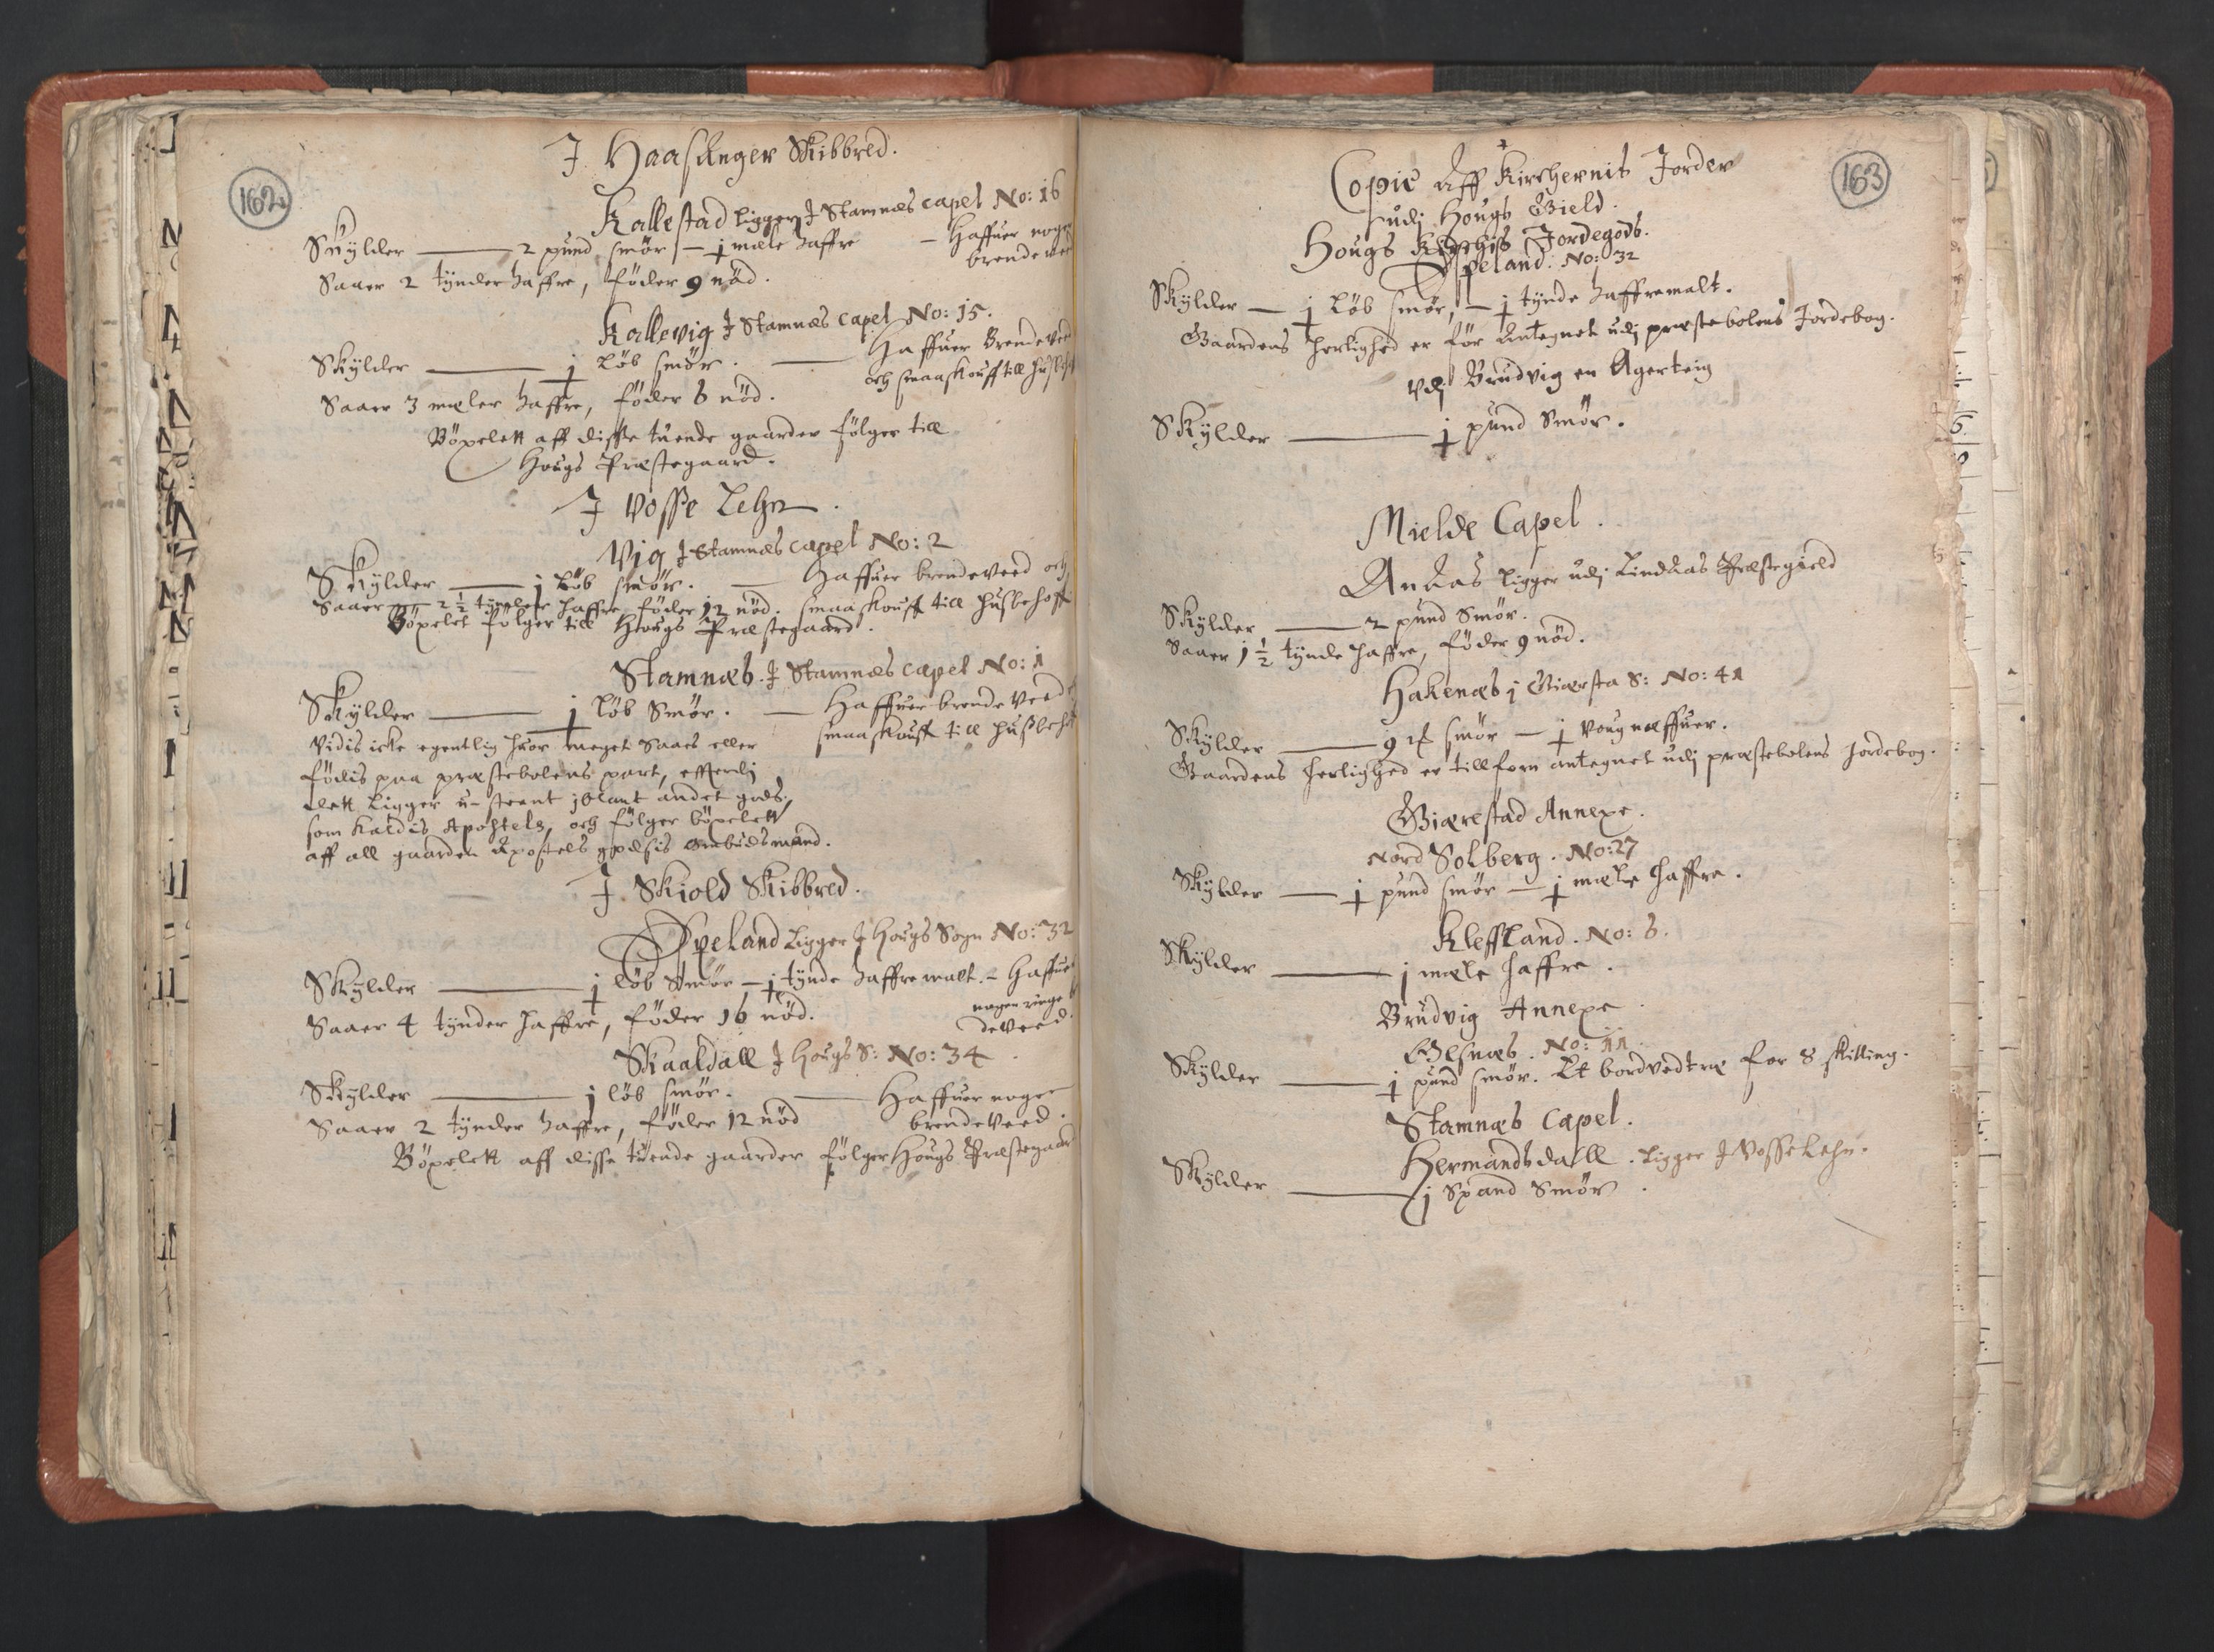 162
J Haasanger Skibbred.
Kallestad ligger J Stamnæs capel No: 16
Skylder — 2 pund smør — j mæle haffre — Haffuer noge
brendeve
Saaer 2 tynder haffre, føder 9 nød.
Kallevig J Stamnæs capel No: 15.
Skylder — j Løb smør. — Haffuer Brendeved
och smaaskouff till
Saaer 3 mæler haffre, føder 6 nød.
Böxelen aff disse tuende gaarder følger till
Hougs Præstegaard.
J Vosse Lehn.
Vig J Stamnæs capel No: 2
Skylder — j Løb smør. — Haffuer brendeveed och
Saaer — 2 ½ haffre føder 12 nød. smaaskouff till husbehoff
Böxelet følger till Hougs Præstegaard.
Stamnæs. J Stamnæs capel No: 1
Skylder — j Løb Smør. — Haffuer brendeveed
smaaskouff till husbeh
Vidis icke egentlig huor meget Saaes eller
fødis paa præstebolens part, efftterdj
det ligger u-steent jblant andet gods,
som kaldis Apostels, och følger böxelen
aff all gaarden Apostels godsis ombudsmand.
J Skiold Skibbred.
Øpeland Ligger J Hougs Sogn No: 32
Skylder — j løb Smør — j tynde haffremalt. – Haffuer
nogen ringe
deveed.
Saaer 4 tynder haffre, føder 16 nød.
Skaaldall J Hougs S: No: 34
Skylder — j løb smør. — Haffuer nogen
brendeveed.
Saaer 2 tynder haffre, føder 12 nød
Böxelen aff disse tuende gaarder følger Hougs Præstegaar
163
Copie Aff Kirchernis Jorder
udj Hougs Gield.
Hougs Kirchis Jordegods.
Øpeland. No: 32
Skylder — j Løb smør, — j tynde haffremalt.
Gaardens herlighed er før Antegnet udj præstebolens Jordebog.
Vdj Brudvig en Agerteig
Skylder — j pund Smør.
Mielde Capel.
Andaas ligger udj Lindaas Præstegield
Skylder — 2 pund Smør.
Saaer 1 ½ tynde haffre, føder 9 nød.
Hakenæs j Giæresta S: No: 41
Skylder — 9 smør — j voug næffuer.
Gaardens herlighed er tillforn antegnet udj præstebolens Jordebog.
Giærestad Annexe.
Nord Solberg. No: 27
Skylder — j pund smør — j mæle haffre.
Kleffland. No: 6.
Skylder — j mæle haffre.
Brudvig Annexe
Olsnæs. No: 11.
Skylder — j pund smør. Et bordvedtræ for 8 skilling.
Stamnæs Capel.
Hermandsdalle. Ligger J Vosse Lehn.
Skylder — j Spand Smør.